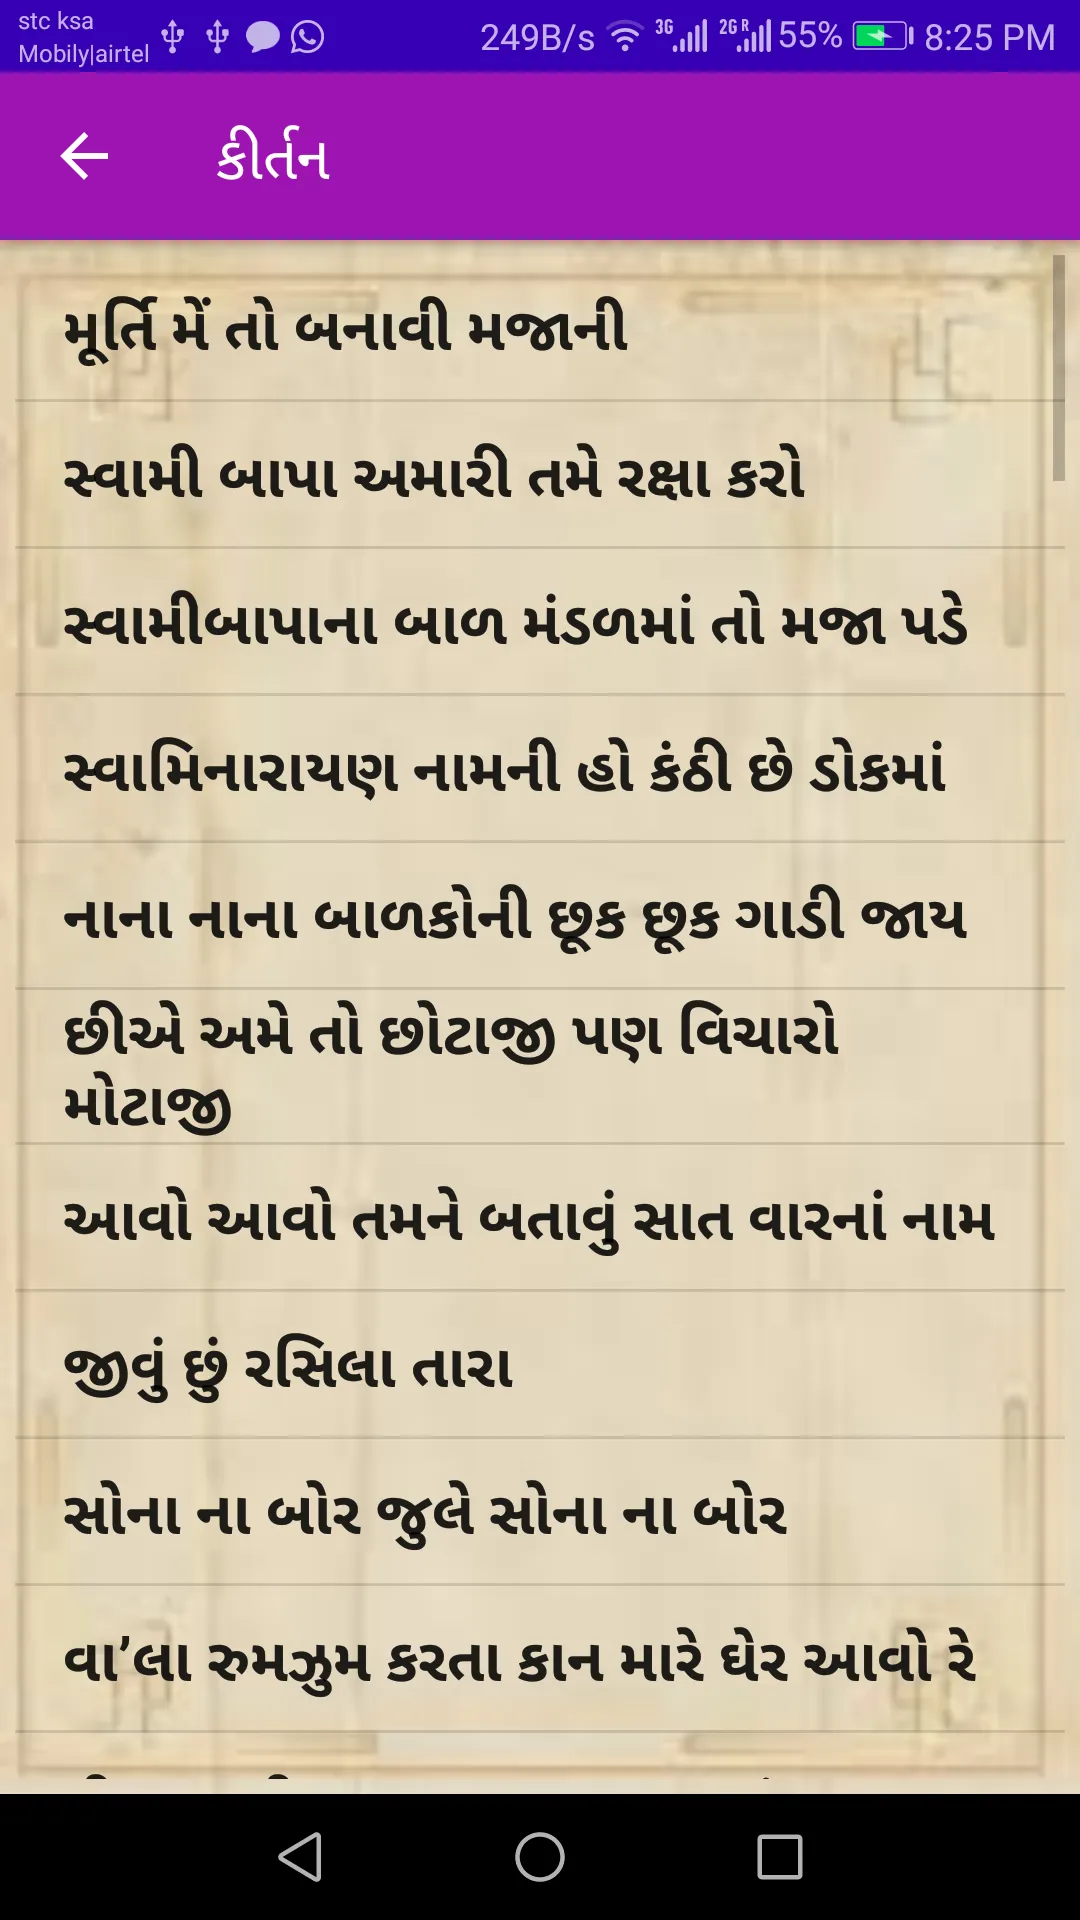 stc ksa
Mobily|airtel
249B/s 3G 2G R 55% 8:25 PM
કીર્તન
મૂર્તિ મેં તો બનાવી મજાની
સ્વામી બાપા અમારી તમે રક્ષા કરો
સ્વામીબાપાના બાળ મંડળમાં તો મજા પડે
સ્વામિનારાયણ નામની હો કંઠી છે ડોકમાં
નાના નાના બાળકોની છૂક છૂક ગાડી જાય
છીએ અમે તો છોટાજી પણ વિચારો
મોટાજી
આવો આવો તમને બતાવું સાત વારનાં નામ
જીવું છું રસિલા તારા
સોના ના બોર જુલે સોના ના બોર
વા’લા રુમઝુમ કરતા કાન મારે ઘેર આવો રે